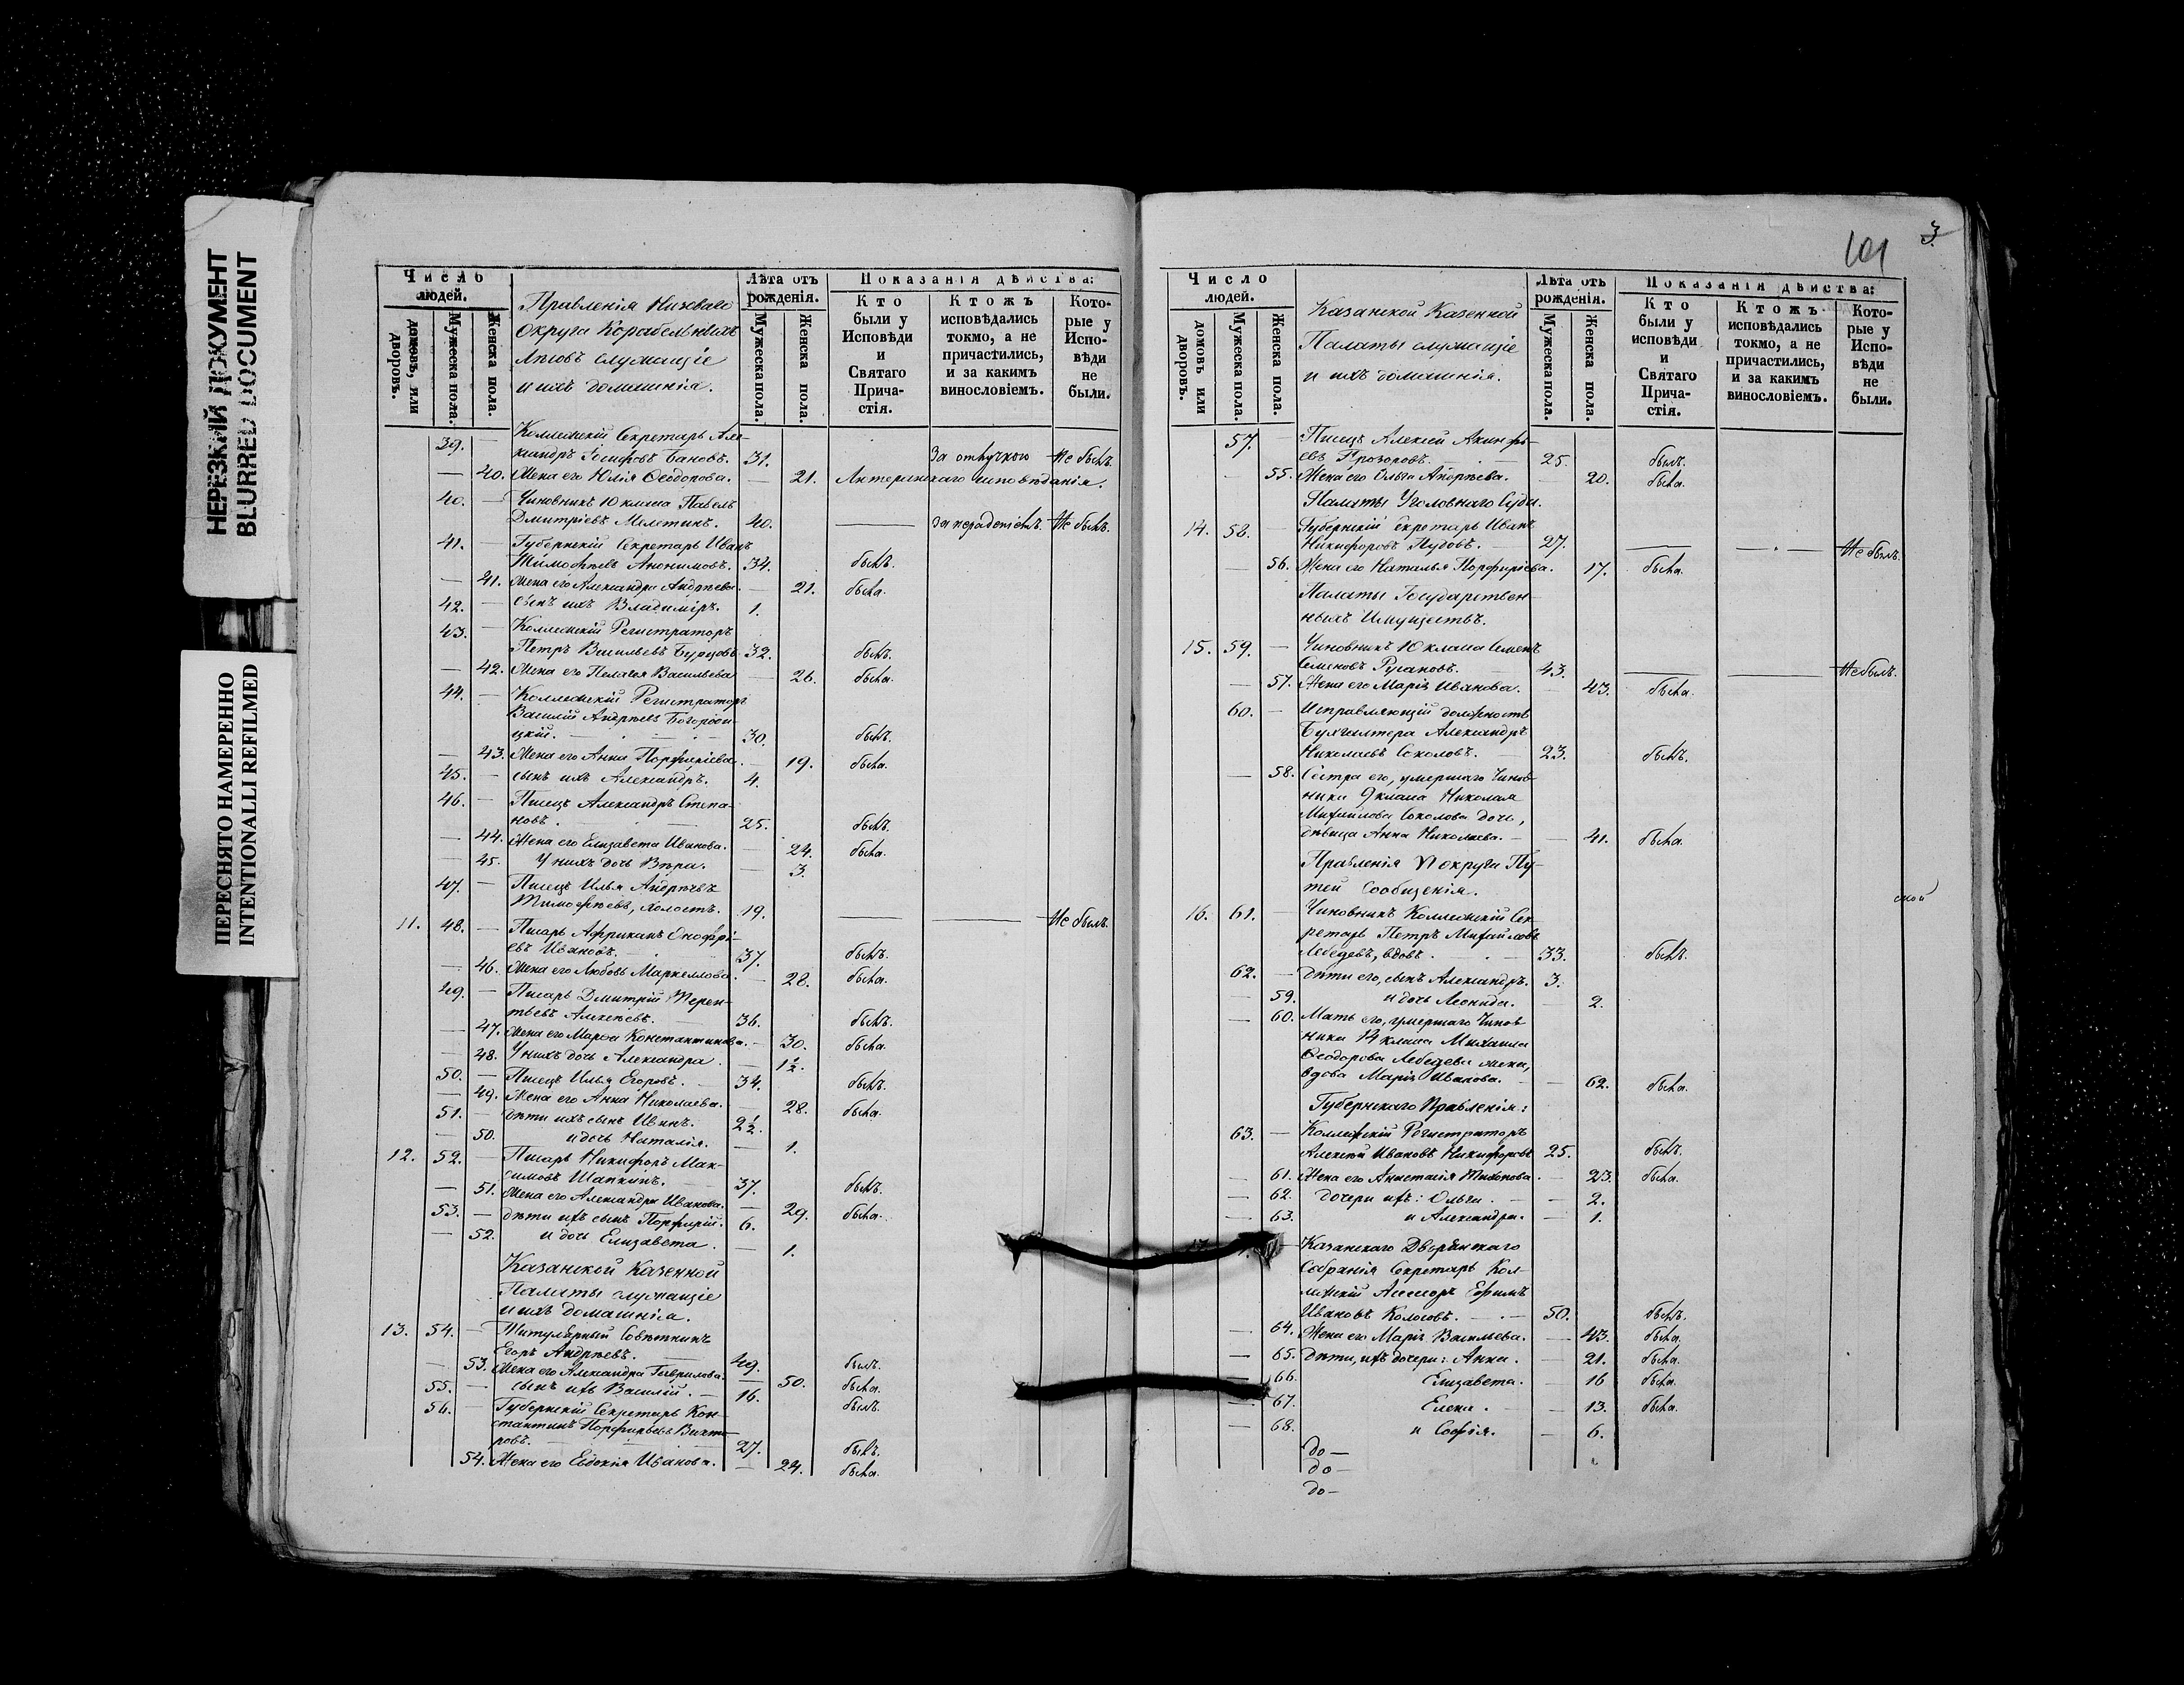 НЕРЕЗКИЙ ДОКУМЕНТ
BLURRED DOCUMENT
ПЕРЕСНЯТО НАМЕРЕННО
INTENTIONALLI REFILMED
Число людей.
домовъ, или дворовъ.
Мужеска пола.
Женска пола.
Правленія Низоваго
Округа Корабельныхъ
лѣсовъ служащіе
и ихъ домашнія.
Лѣта отъ рожденія.
Мужеска пола.
Женска пола.
Показанія дѣйства:
Кто были у Исповѣди и Святаго Прича-стія.
Ктожъ исповѣдались токмо, а не причастились, и за какимъ винословіемъ.
Кото-рые у Испо-вѣди не были.
39. — Коллежскій Секретарь Але-
ксандръ Іосифовъ Бановъ. 31. За отлучкою Не былъ.
— 40. Жена его Юлія Ѳеодорова. — 21. Лютеранскаго исповѣданія.
40. — Чиновникъ 10 класса Павелъ
Дмитріевъ 40. — за нерадѣніемъ. Не былъ.
41. — Губернскій Секретарь Иванъ
Тимофѣевъ Анонимовъ. 34. былъ.
— 41. Жена его Александра Андреева. — 21. была.
42. — сынъ ихъ Владиміръ. 1.
43. — Коллежскій Регистраторъ
Петръ Васильевъ Бурцовъ 32. былъ.
— 42. Жена его Пелагея Васильева — 26. была.
44. — Коллежскій Регистраторъ
Василій Андреевъ Богороди-
цкій. 30. былъ.
— 43. Жена его Анна Порфиріева. — 19. была.
45. — сынъ ихъ Александръ. 4.
46. — Писецъ Александръ Степа-
новъ. 25. былъ.
— 44. Жена его Елизавета Иванова. — 24. была.
— 45. У нихъ дочь Вѣра. — 3.
47. — Писецъ Илья Андреевъ
Тимофѣевъ, холостъ. 19. — — Не былъ.
11. 48. — Писарь Африканъ Онофрі-
евъ Ивановъ. 37. былъ.
— 46. Жена его Любовь Маркеллова. — 28. была.
49. — Писарь Дмитрій Терен-
тьевъ Алексѣевъ. 36. былъ.
— 47. Жена его Марѳа Константинова. — 30. была.
— 48. У нихъ дочь Александра. — 1½.
50. — Писецъ Илья Егоровъ. 34. былъ.
— 49. Жена его Анна Николаева. — 28. была.
51. — Дѣти ихъ: сынъ Иванъ. 2½.
— 50. и дочь Наталія. — 1.
12. 52. — Писарь Никифоръ Мак-
симовъ Шапкинъ. 37. былъ.
— 51. Жена его Александра Иванова. — 29. была.
53. — Дѣти ихъ сынъ Порфирій. 6.
— 52. и дочь Елизавета. — 1.
Казанской Казенной
Палаты служащіе
и ихъ домашнія.
13. 54. — Титулярный Совѣтникъ
Егоръ Андреевъ. 49. былъ.
— 53. Жена его Александра Гаврилова. — 50. была.
55. — сынъ ихъ Василій. — 16. былъ.
56. — Губернскій Секретарь Кон-
стантинъ Порфирьевъ Викто-
ровъ. 27. былъ.
— 54. Жена его Евдокія Иванова. — 24. была.
101 3.
Число людей.
домовъ или дворовъ.
Мужеска пола.
Женска пола.
Казанской Казенной
Палаты служащіе
и ихъ домашнія.
Лѣта отъ рожденія.
Мужеска пола.
Женска пола.
Показанія дѣйства:
Кто были у исповѣди и Святаго Прича-стія.
Ктожъ исповѣдались токмо, а не причастились, и за какимъ винословіемъ.
Кото-рые у Испо-вѣди не были.
57. — Писецъ Алексій Акинфі-
евъ Прозоровъ. 25. былъ.
— 55. Жена его Ольга Андреева. — 20. была.
Палаты Уголовнаго Суда.
14. 58. — Губернскій Секретарь Иванъ
Никифоровъ Пудовъ. — 27. — — Не былъ.
— 56. Жена его Наталья Порфиріева. 17. была.
Палаты Государствен-
ныхъ Имуществъ.
15. 59. — Чиновникъ 10 класса Семенъ
Семеновъ Русановъ. — 43. — — Не былъ.
— 57. Жена его Марія Иванова. — 43. была.
60. — Исправляющій должность
Бухгалтера Александръ
Николаевъ Соколовъ. — 23. былъ.
— 58. Сестра его, умершаго Чинов-
ника 9 класса Николая
Михайлова Соколова дочь,
дѣвица Анна Николаева. — — 41. была.
Правленія VI округа Пу-
тей Сообщенія.
ской
16. 61. — Чиновникъ Коллежскій Сек-
ретарь Петръ Михайловъ
Лебедевъ, вдовъ. 33. былъ.
62. — Дѣти его, сынъ Александръ. 3.
— 59. и дочь Леонида. — 2.
— 60. Мать его, умершаго Чинов-
ника 14 класса Михаила
Ѳеодорова Лебедева жена,
вдова Марія Иванова. — 62. была.
Губернскаго Правленія:
63. — Коллежскій Регистраторъ
Алексій Ивановъ Никифоровъ 25. былъ.
— 61. Жена его Анастасія Тихонова. — 23. была.
— 62. дочери ихъ: Ольга. — — 2.
— 63. и Александра. — 1.
17. — Казанскаго Дворянскаго
Собранія Секретарь Кол-
лежскій Ассесоръ Ефимъ
Ивановъ Колосовъ. — 50. былъ.
— 64. Жена его Марія Васильева. — 43. была.
— 65. Дѣти, ихъ дочери: Анна. — 21. была.
— 66. Елизавета. — 16 была.
— 67. Елена. — 13. была.
— 68. и Софія. — 6.
до —
до —
до —